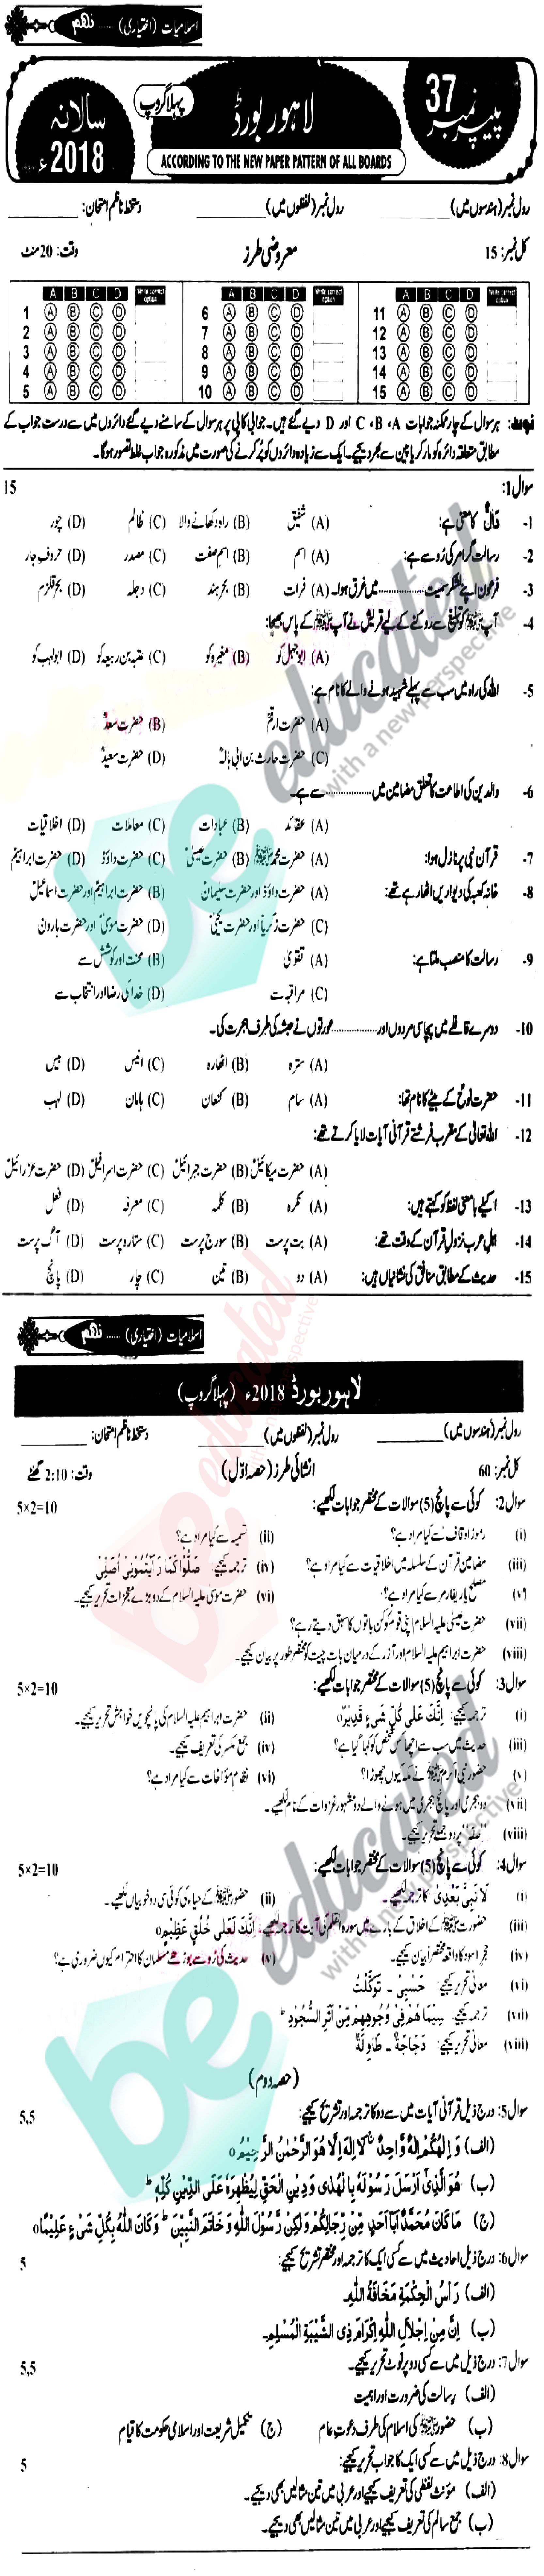 اسلامیات (اختیاری) ...... نہم
پیپر نمبر 37
لاہور بورڈ
پہلا گروپ
سالانہ 2018ء
ACCORDING TO THE NEW PAPER PATTERN OF ALL BOARDS
رول نمبر (ہندسوں میں) ________ رول نمبر (لفظوں میں) ________ دستخط ناظم امتحان: ________
کل نمبر: 15 معروضی طرز وقت: 20 منٹ
A B C D Write correct option A B C D Write correct option A B C D Write correct option
1 A B C D 6 A B C D 11 A B C D
2 A B C D 7 A B C D 12 A B C D
3 A B C D 8 A B C D 13 A B C D
4 A B C D 9 A B C D 14 A B C D
5 A B C D 10 A B C D 15 A B C D
نوٹ: ہر سوال کے چار ممکنہ جوابات A، B، C اور D دیے گئے ہیں۔ جوابی کاپی پر ہر سوال کے سامنے دیے گئے دائروں میں سے درست جواب کے
مطابق متعلقہ دائرہ کو مارکر یا پین سے بھر دیجیے۔ ایک سے زیادہ دائروں کو پُر کرنے کی صورت میں مذکورہ جواب غلط تصور ہوگا۔
سوال 1: 15
1- دَالٌّ کا معنی ہے: (A) شفیق (B) راہ دکھانے والا (C) ظالم (D) چور
2- رسالت گرامر کی رُو سے ہے: (A) اسم (B) اسم صفت (C) مصدر (D) حروفِ جار
3- فرعون اپنے لشکر سمیت ............ میں غرق ہوا۔ (A) فرات (B) بحر ہند (C) دجلہ (D) بحر قلزم
4- آپ ﷺ کو تبلیغ سے روکنے کے لیے قریش نے آپ ﷺ کے پاس بھیجا:
(A) ابوجہل کو (B) مغیرہ کو (C) عتبہ بن ربیعہ کو (D) ابولہب کو
5- اللہ کی راہ میں سب سے پہلے شہید ہونے والے کا نام ہے:
(A) حضرت ارقمؓ (B) حضرت سعدؓ
(C) حضرت حارث بن ابی ہالہؓ (D) حضرت سعیدؓ
6- والدین کی اطاعت کا تعلق مضامین میں ............ سے ہے۔
(A) عقائد (B) عبادات (C) معاملات (D) اخلاقیات
7- قرآن نبی پر نازل ہوا: (A) حضرت محمد ﷺ (B) حضرت عیسیٰؑ (C) حضرت داؤدؑ (D) حضرت ابراہیمؑ
8- خانہ کعبہ کی دیواریں اٹھا رہے تھے: (A) حضرت داؤدؑ اور حضرت سلیمانؑ (B) حضرت ابراہیمؑ اور حضرت اسماعیلؑ
(C) حضرت زکریاؑ اور حضرت یحییٰؑ (D) حضرت موسیٰؑ اور حضرت ہارونؑ
9- رسالت کا منصب ملتا ہے: (A) تقویٰ (B) محنت اور کوشش سے
(C) مراقبہ سے (D) خدا کی رضا اور انتخاب سے
10- دوسرے قافلے میں پچاسی مردوں اور ............ عورتوں نے حبشہ کی طرف ہجرت کی۔
(A) سترہ (B) اٹھارہ (C) انیس (D) بیس
11- حضرت نوحؑ کے بیٹے کا نام تھا: (A) سام (B) کنعان (C) ہامان (D) لہب
12- اللہ تعالیٰ کے مقرب فرشتے قرآنی آیات لایا کرتے تھے:
(A) حضرت میکائیلؑ (B) حضرت جبرائیلؑ (C) حضرت اسرافیلؑ (D) حضرت عزرائیلؑ
13- اکیلے بامعنی لفظ کو کہتے ہیں: (A) نکرہ (B) کلمہ (C) معرفہ (D) فعل
14- اہلِ عرب نزول قرآن کے وقت تھے: (A) بت پرست (B) سورج پرست (C) ستارہ پرست (D) آگ پرست
15- حدیث کے مطابق منافق کی نشانیاں ہیں: (A) دو (B) تین (C) چار (D) پانچ
اسلامیات (اختیاری) ...... نہم
لاہور بورڈ 2018ء (پہلا گروپ)
رول نمبر (ہندسوں میں) ________ رول نمبر (لفظوں میں) ________ دستخط ناظم امتحان: ________
کل نمبر: 60 انشائی طرز (حصہ اوّل) وقت: 2:10 گھنٹے
سوال 2: کوئی سے پانچ (5) سوالات کے مختصر جوابات لکھیے: 5×2=10
(i) رموز اوقاف سے کیا مراد ہے؟ (ii) تسمیہ سے کیا مراد ہے؟
(iii) مضامینِ قرآن کے سلسلہ میں اخلاقیات سے کیا مراد ہے؟ (iv) ترجمہ کیجیے: صَلُّوا كَمَا رَاَيْتُمُونِي اُصَلِّي
(v) مصلح یا ریفارمر سے کیا مراد ہے؟ (vi) حضرت موسیٰ علیہ السلام کے دو بڑے معجزات تحریر کیجیے۔
(vii) حضرت عیسیٰ علیہ السلام اپنی قوم کو کن باتوں کا سبق دیتے رہے؟
(viii) حضرت ابراہیم علیہ السلام اور آزر کے درمیان بات چیت کو مختصر طور پر بیان کیجیے۔
سوال 3: کوئی سے پانچ (5) سوالات کے مختصر جوابات لکھیے: 5×2=10
(i) ترجمہ کیجیے: اِنَّكَ عَلٰی كُلِّ شَیْءٍ قَدِيْرٌ (ii) حضرت ابراہیم علیہ السلام کی پانچویں خواہش تحریر کیجیے۔
(iii) حدیث میں سب سے اچھا کس شخص کو کہا گیا ہے؟ (iv) جمع مکسر کی تعریف کیجیے۔
(v) حضور نبی اکرم ﷺ نے مکہ کیوں چھوڑا؟ (vi) نظامِ مؤاخات سے کیا مراد ہے؟
(vii) دو ہجری اور پانچ ہجری میں ہونے والے دو مشہور غزوات کے نام لکھیے۔
(viii) پر دو جملے تحریر کیجیے۔
سوال 4: کوئی سے پانچ (5) سوالات کے مختصر جوابات لکھیے: 5×2=10
(i) لَا نَبِيَّ بَعْدِیْ کا ترجمہ لکھیے۔ (ii) حضور ﷺ کے حیاء کی کوئی سی دو خوبیاں لکھیے۔
(iii) حضور ﷺ کے اخلاق کے بارے میں سورۃ القلم کی آیت کا ترجمہ لکھیے: اِنَّكَ لَعَلٰی خُلُقٍ عَظِيْمٍ
(iv) حجرِ اسود کا واقعہ مختصراً بیان کیجیے۔ (v) حدیث کی رُو سے بوڑھے مسلمان کا احترام کیوں ضروری ہے؟
(vi) معانی تحریر کیجیے: حَسْبِیَ ۔ تَوَكَّلْتُ
(vii) ترجمہ کیجیے: سِيْمَاهُمْ فِیْ وُجُوْهِهِمْ مِّنْ اَثَرِ السُّجُوْدِ
(viii) معانی تحریر کیجیے: دَجَاجَةٌ ۔ طَاوِلَةٌ
(حصہ دوم)
سوال 5: درج ذیل قرآنی آیات میں سے دو کا ترجمہ اور تشریح کیجیے: 5,5
(الف) وَاِلٰهُكُمْ اِلٰهٌ وَّاحِدٌ لَا اِلٰهَ اِلَّا هُوَ الرَّحْمٰنُ الرَّحِيْمُ
(ب) هُوَ الَّذِیْ اَرْسَلَ رَسُوْلَهٗ بِالْهُدٰی وَدِيْنِ الْحَقِّ لِيُظْهِرَهٗ عَلَی الدِّيْنِ كُلِّهٖ
(ج) مَا كَانَ مُحَمَّدٌ اَبَا اَحَدٍ مِّنْ رِّجَالِكُمْ وَلٰكِنْ رَّسُوْلَ اللّٰهِ وَخَاتَمَ النَّبِيّٖنَ وَكَانَ اللّٰهُ بِكُلِّ شَیْءٍ عَلِيْمًا
سوال 6: درج ذیل احادیث میں سے کسی ایک کا ترجمہ اور مختصر تشریح کیجیے: 5
(الف) رَاْسُ الْحِكْمَةِ مَخَافَةُ اللّٰهِ۔
(ب) اِنَّ مِنْ اِجْلَالِ اللّٰهِ اِكْرَامَ ذِی الشَّيْبَةِ الْمُسْلِمِ۔
سوال 7: درج ذیل میں سے کسی دو پر نوٹ تحریر کیجیے۔ 5,5
(الف) رسالت کی ضرورت اور اہمیت
(ب) حضور ﷺ کی اسلام کی طرف دعوتِ عام (ج) تکمیل شریعت اور اسلامی حکومت کا قیام
سوال 8: درج ذیل میں سے کسی ایک کا جواب تحریر کیجیے: 5
(الف) مؤنث لفظی کی تعریف کیجیے اور عربی میں تین مثالیں بھی دیجیے۔
(ب) جمع سالم کی تعریف کیجیے اور عربی میں تین مثالیں بھی دیجیے۔
be educated
with a new perspective